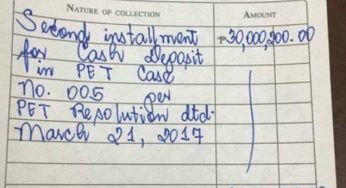 NATURE OF COLLECTION AMOUNT
Second installment ₱30,000,200.00
for Cash Deposit
in PET Case
No. 005 per
PET Resolution dtd.
March 21, 2017